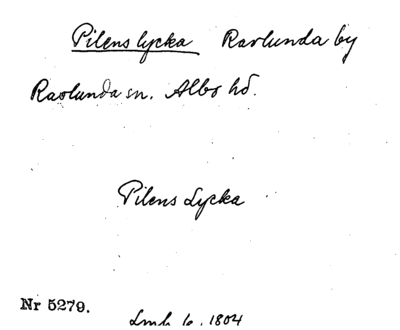 Pilens lycka Ravlunda by
Ravlunda sn. Albo hd.
Pilens Lycka
Nr 5279.
Lmh 6. 1804